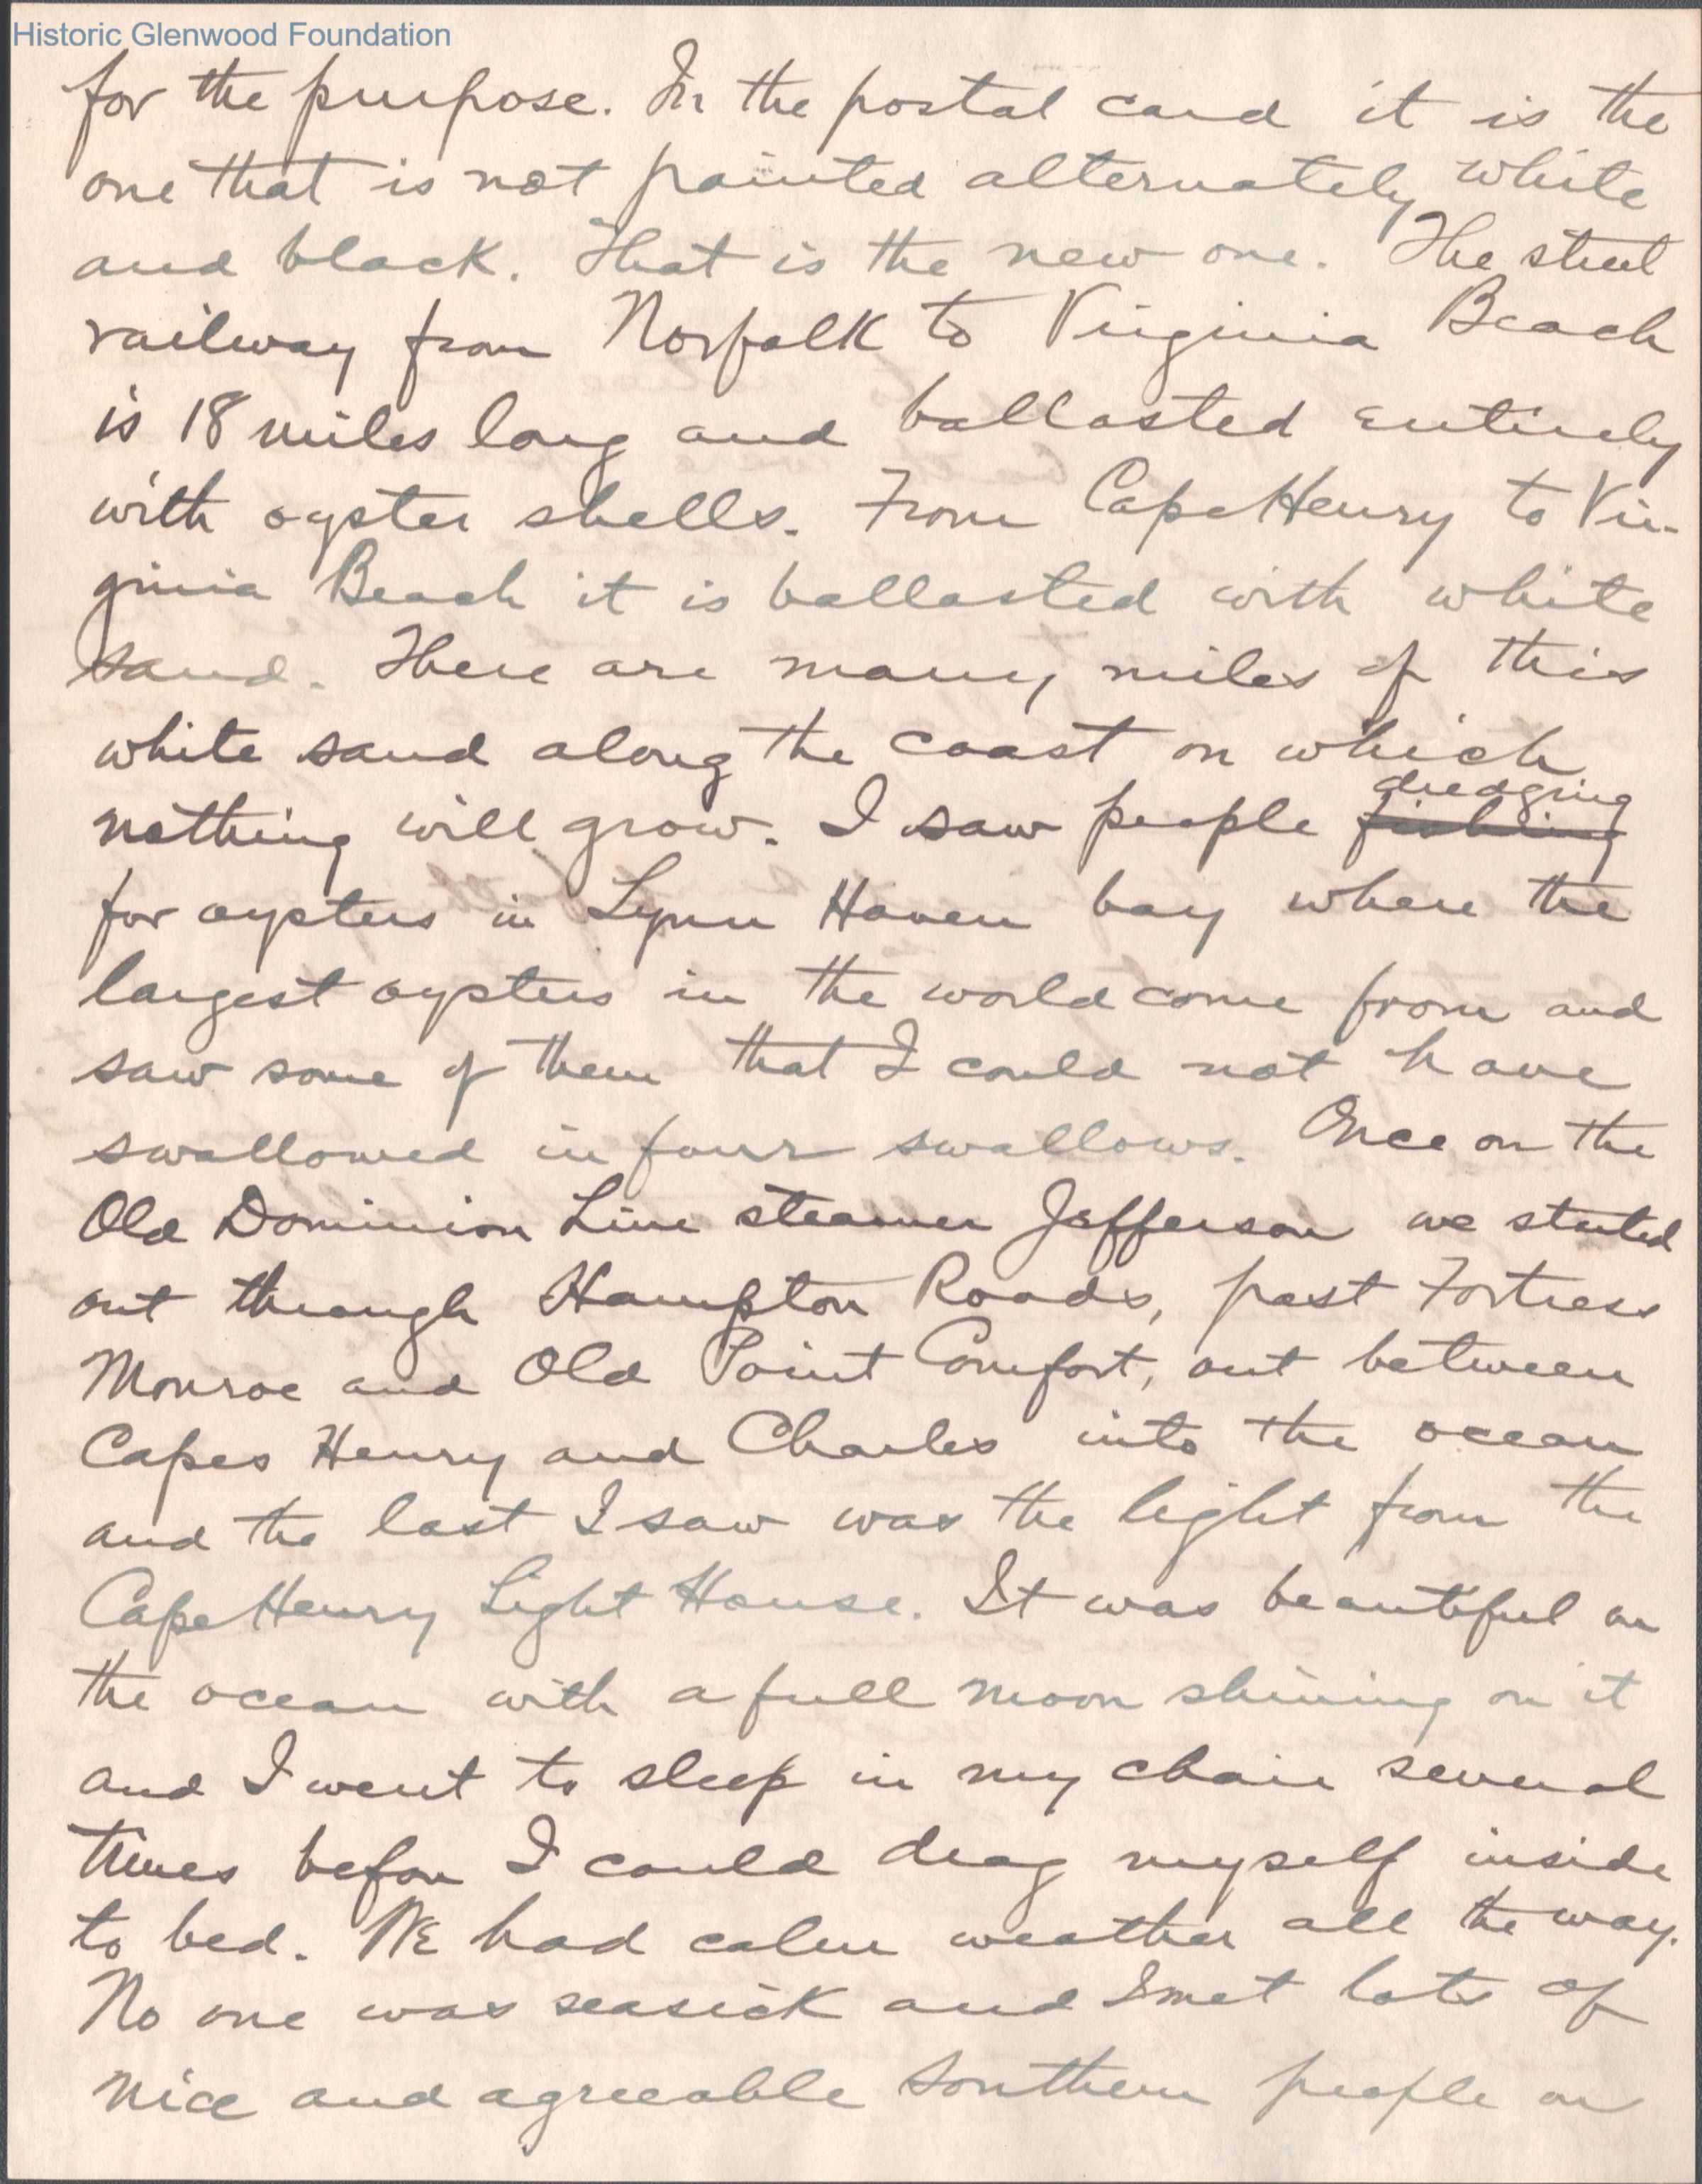 Historic Glenwood Foundation
for the purpose. In the postal card it is the
one that is not painted alternately white
and black. That is the new one. The street
railway from Norfolk to Virginia Beach
is 18 miles long and ballasted entirely
with oyster shells. From Cape Henry to Vir-
ginia Beach it is ballasted with white
sand. There are many miles of this
white sand along the coast on which
dredging
nothing will grow. I saw people fishing
for oysters in Lynn Haven bay where the
largest oysters in the world come from and
saw some of them that I could not have
swallowed in four swallows. Once on the
Old Dominion Line steamer Jefferson we started
out through Hampton Roads, past Fortress
Monroe and Old Point Comfort, out between
Capes Henry and Charles into the ocean
and the last I saw was the light from the
Cape Henry Light House. It was beautiful on
the ocean with a full moon shining on it
and I went to sleep in my chair several
times before I could drag myself inside
to bed. WE had calm weather all the way.
No one was seasick and I met lots of
nice and agreeable Southern people on